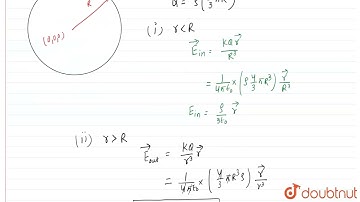 R
(0,0,0)
(i) r<R
E⃗in = KQr⃗/R³
= 1/4πε₀ × (ρ 4/3 πR³) r⃗/R³
E⃗in = ρ/3ε₀ r⃗
(ii) r>R
E⃗out = KQ/r³ r⃗
= 1/4πε₀ × (4/3 πR³ρ) r⃗/r³
doubtnut